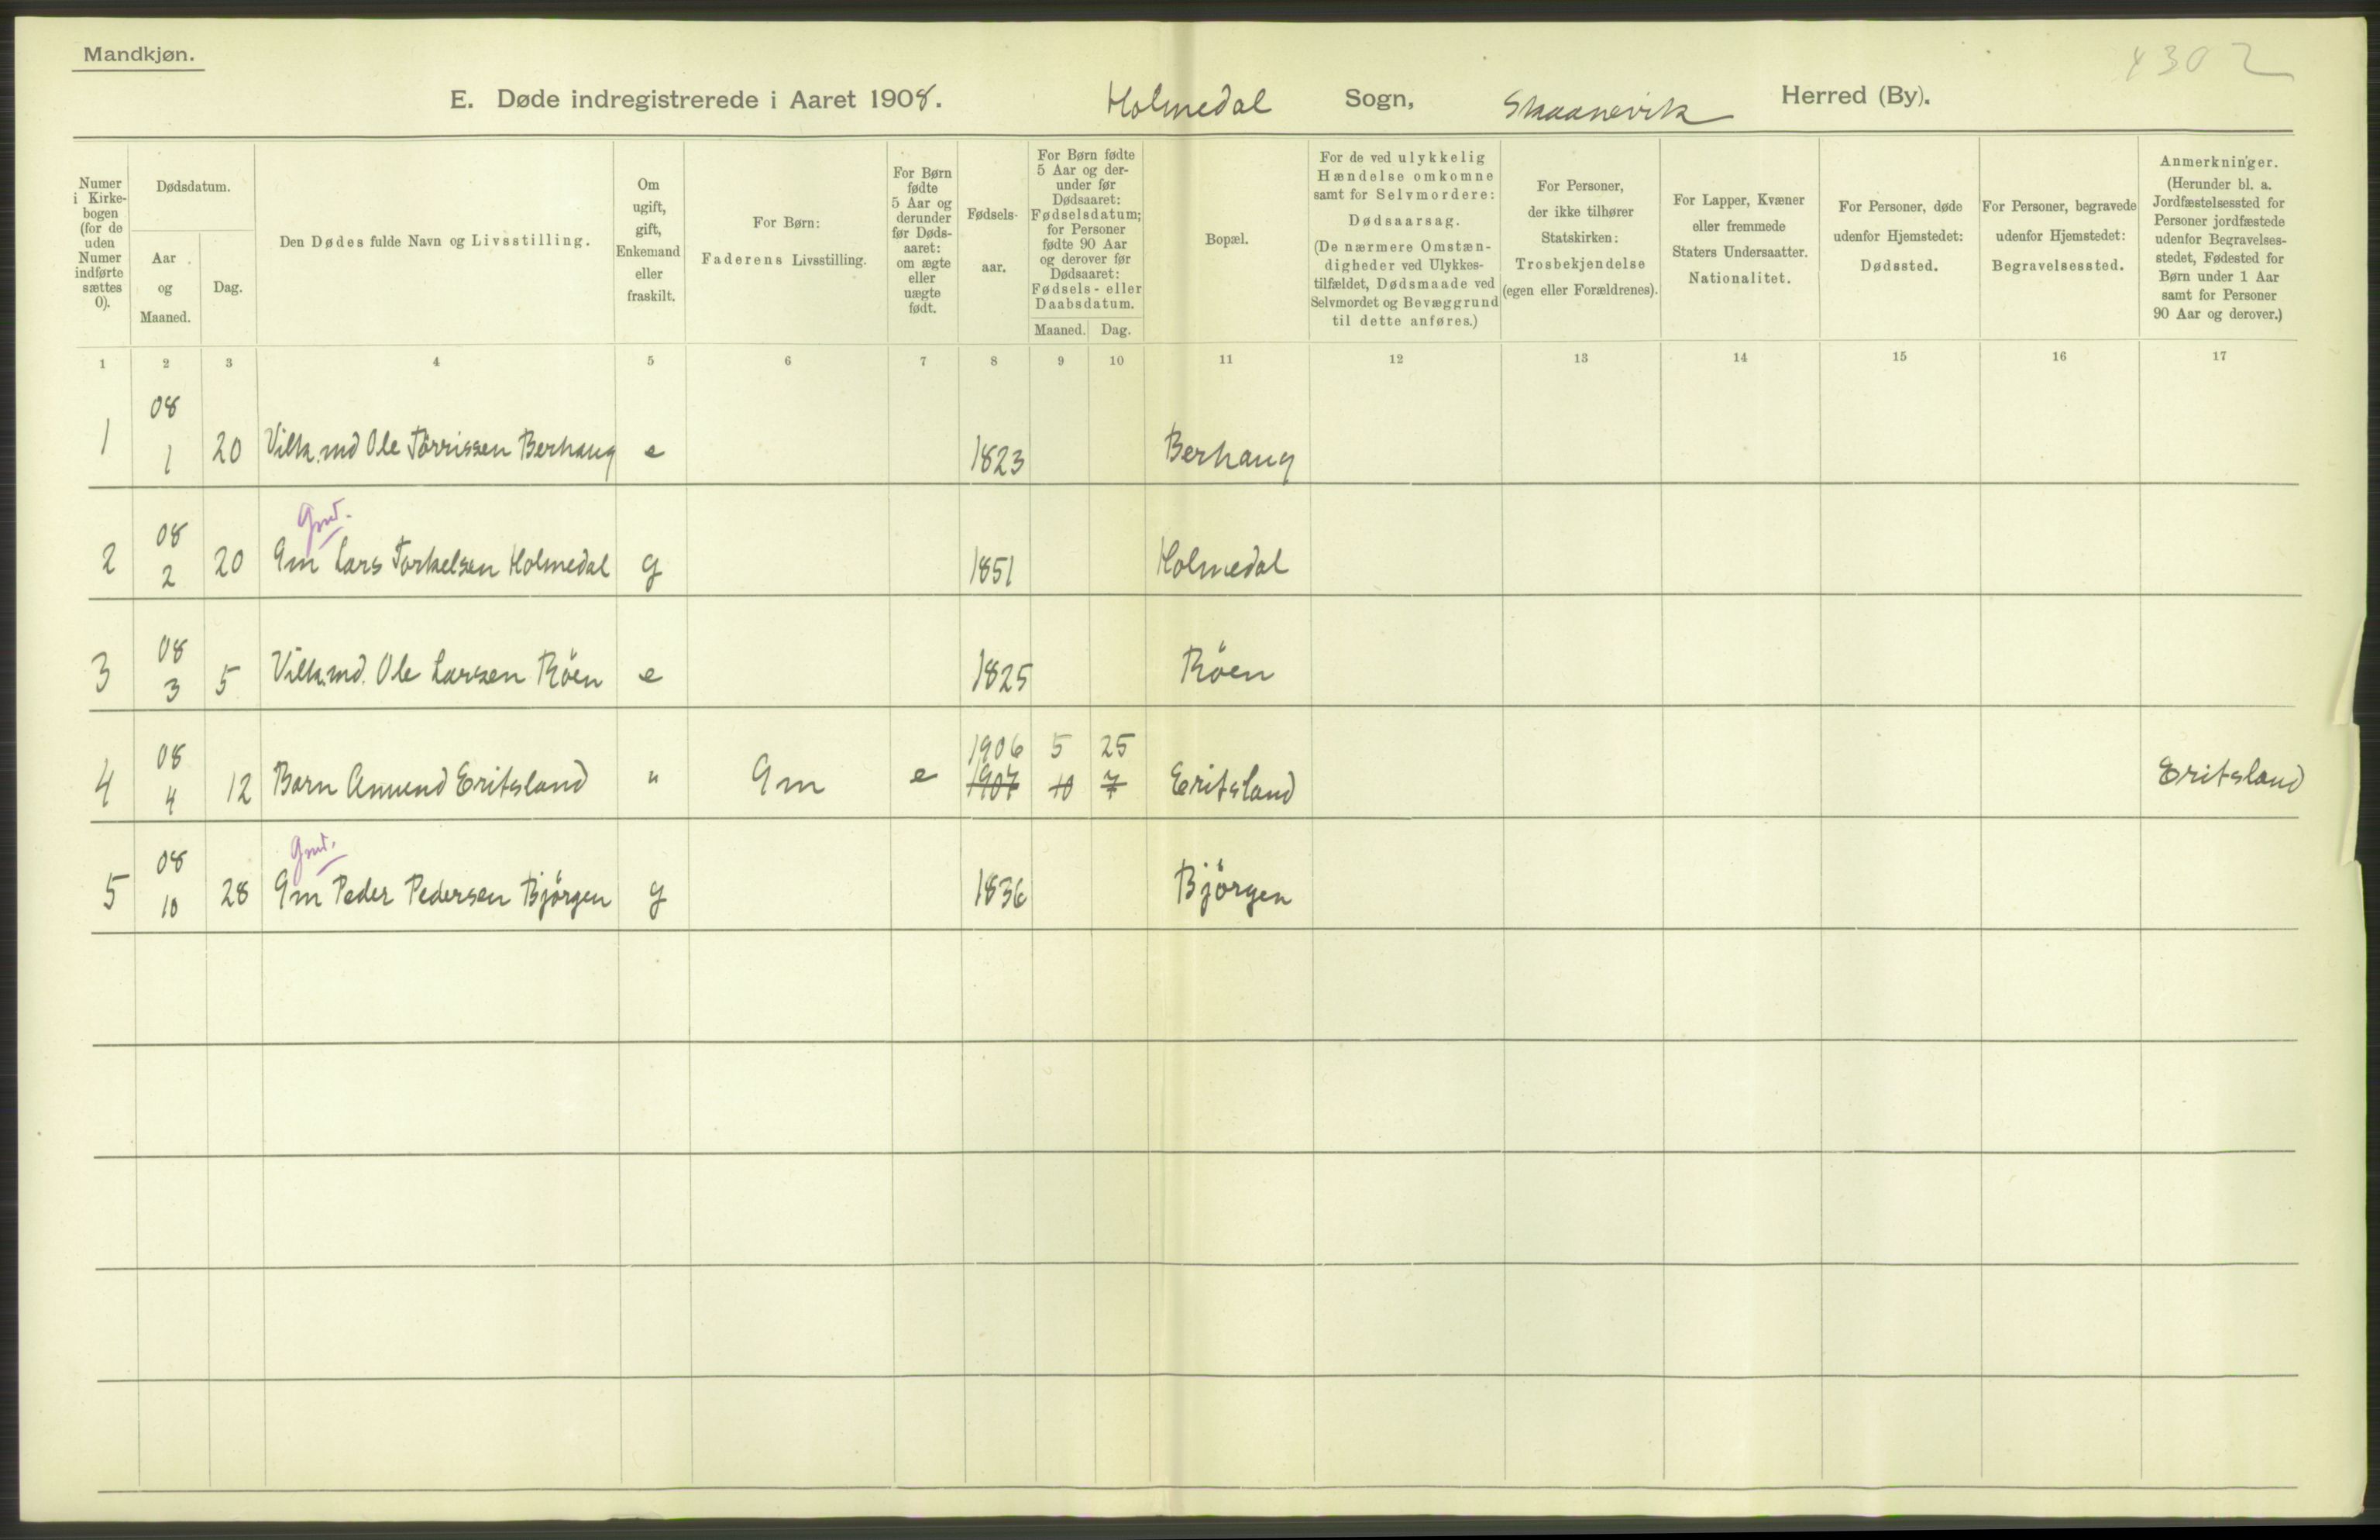 Mandkjøn.
4302
E. Døde indregistrerede i Aaret 1908. Holmedal Sogn, Skaanevik Herred (By).
Numer i Kirke-bogen (for de uden Numer indførte sættes 0).
Dødsdatum.
Aar og Maaned.
Dag.
Den Dødes fulde Navn og Livsstilling.
Om ugift, gift, Enkemand eller fraskilt.
For Børn: Faderens Livsstilling.
For Børn fødte 5 Aar og derunder før Døds-aaret: om ægte eller uægte født.
Fødsels-aar.
For Børn fødte 5 Aar og der-under før Dødsaaret: Fødselsdatum; for Personer fødte 90 Aar og derover før Dødsaaret: Fødsels- eller Daabsdatum.
Maaned. Dag.
Bopæl.
For de ved ulykkelig Hændelse omkomne samt for Selvmordere: Dødsaarsag. (De nærmere Omstæn-digheder ved Ulykkes-tilfældet, Dødsmaade ved Selvmordet og Bevæggrund til dette anføres.)
For Personer, der ikke tilhører Statskirken: Trosbekjendelse (egen eller Forældrenes).
For Lapper, Kvæner eller fremmede Staters Undersaatter. Nationalitet.
For Personer, døde udenfor Hjemstedet: Dødssted.
For Personer, begravede udenfor Hjemstedet: Begravelsessted.
Anmerkninger. (Herunder bl. a. Jordfæstelsessted for Personer jordfæstede udenfor Begravelses-stedet, Fødested for Børn under 1 Aar samt for Personer 90 Aar og derover.)
1 2 3 4 5 6 7 8 9 10 11 12 13 14 15 16 17
08
1 1 20 Vilk.md Ole Törrissen Berhaug e 1823 Berhaug
Gmd.
08
2 2 20 Gm Lars Torkelsen Holmedal g 1851 Holmedal
08
3 3 5 Vilk.md. Ole Larsen Röen e 1825 Röen
08 1906 5 25
4 4 12 Barn Amund Eritsland " Gm e 1907 10 7 Eritsland Eritsland
Gmd.
08
5 10 28 Gm Peder Pedersen Bjørgen g 1836 Bjørgen